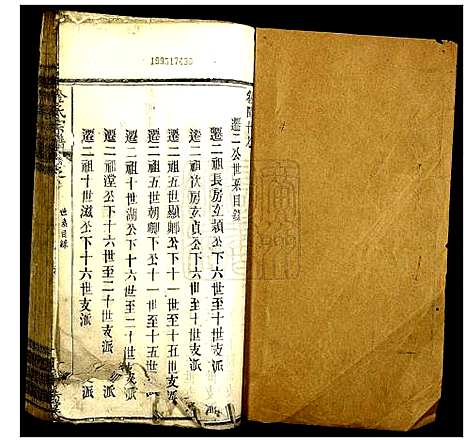 卷四十八
遷二公世系目錄
遷二祖長房玄穎公下六世至十世支派
遷二祖次房玄貞公下六世至十世支派
遷二祖五世顯卿公下十一世至十五世
遷二祖五世朝卿公下十一世至十五世
遷二祖十世湖公下十六世至二十世支派
遷二祖十世瀅公下十六世至二十世支派
遷二祖十世滋公下十六世支派
世系目錄
199517430